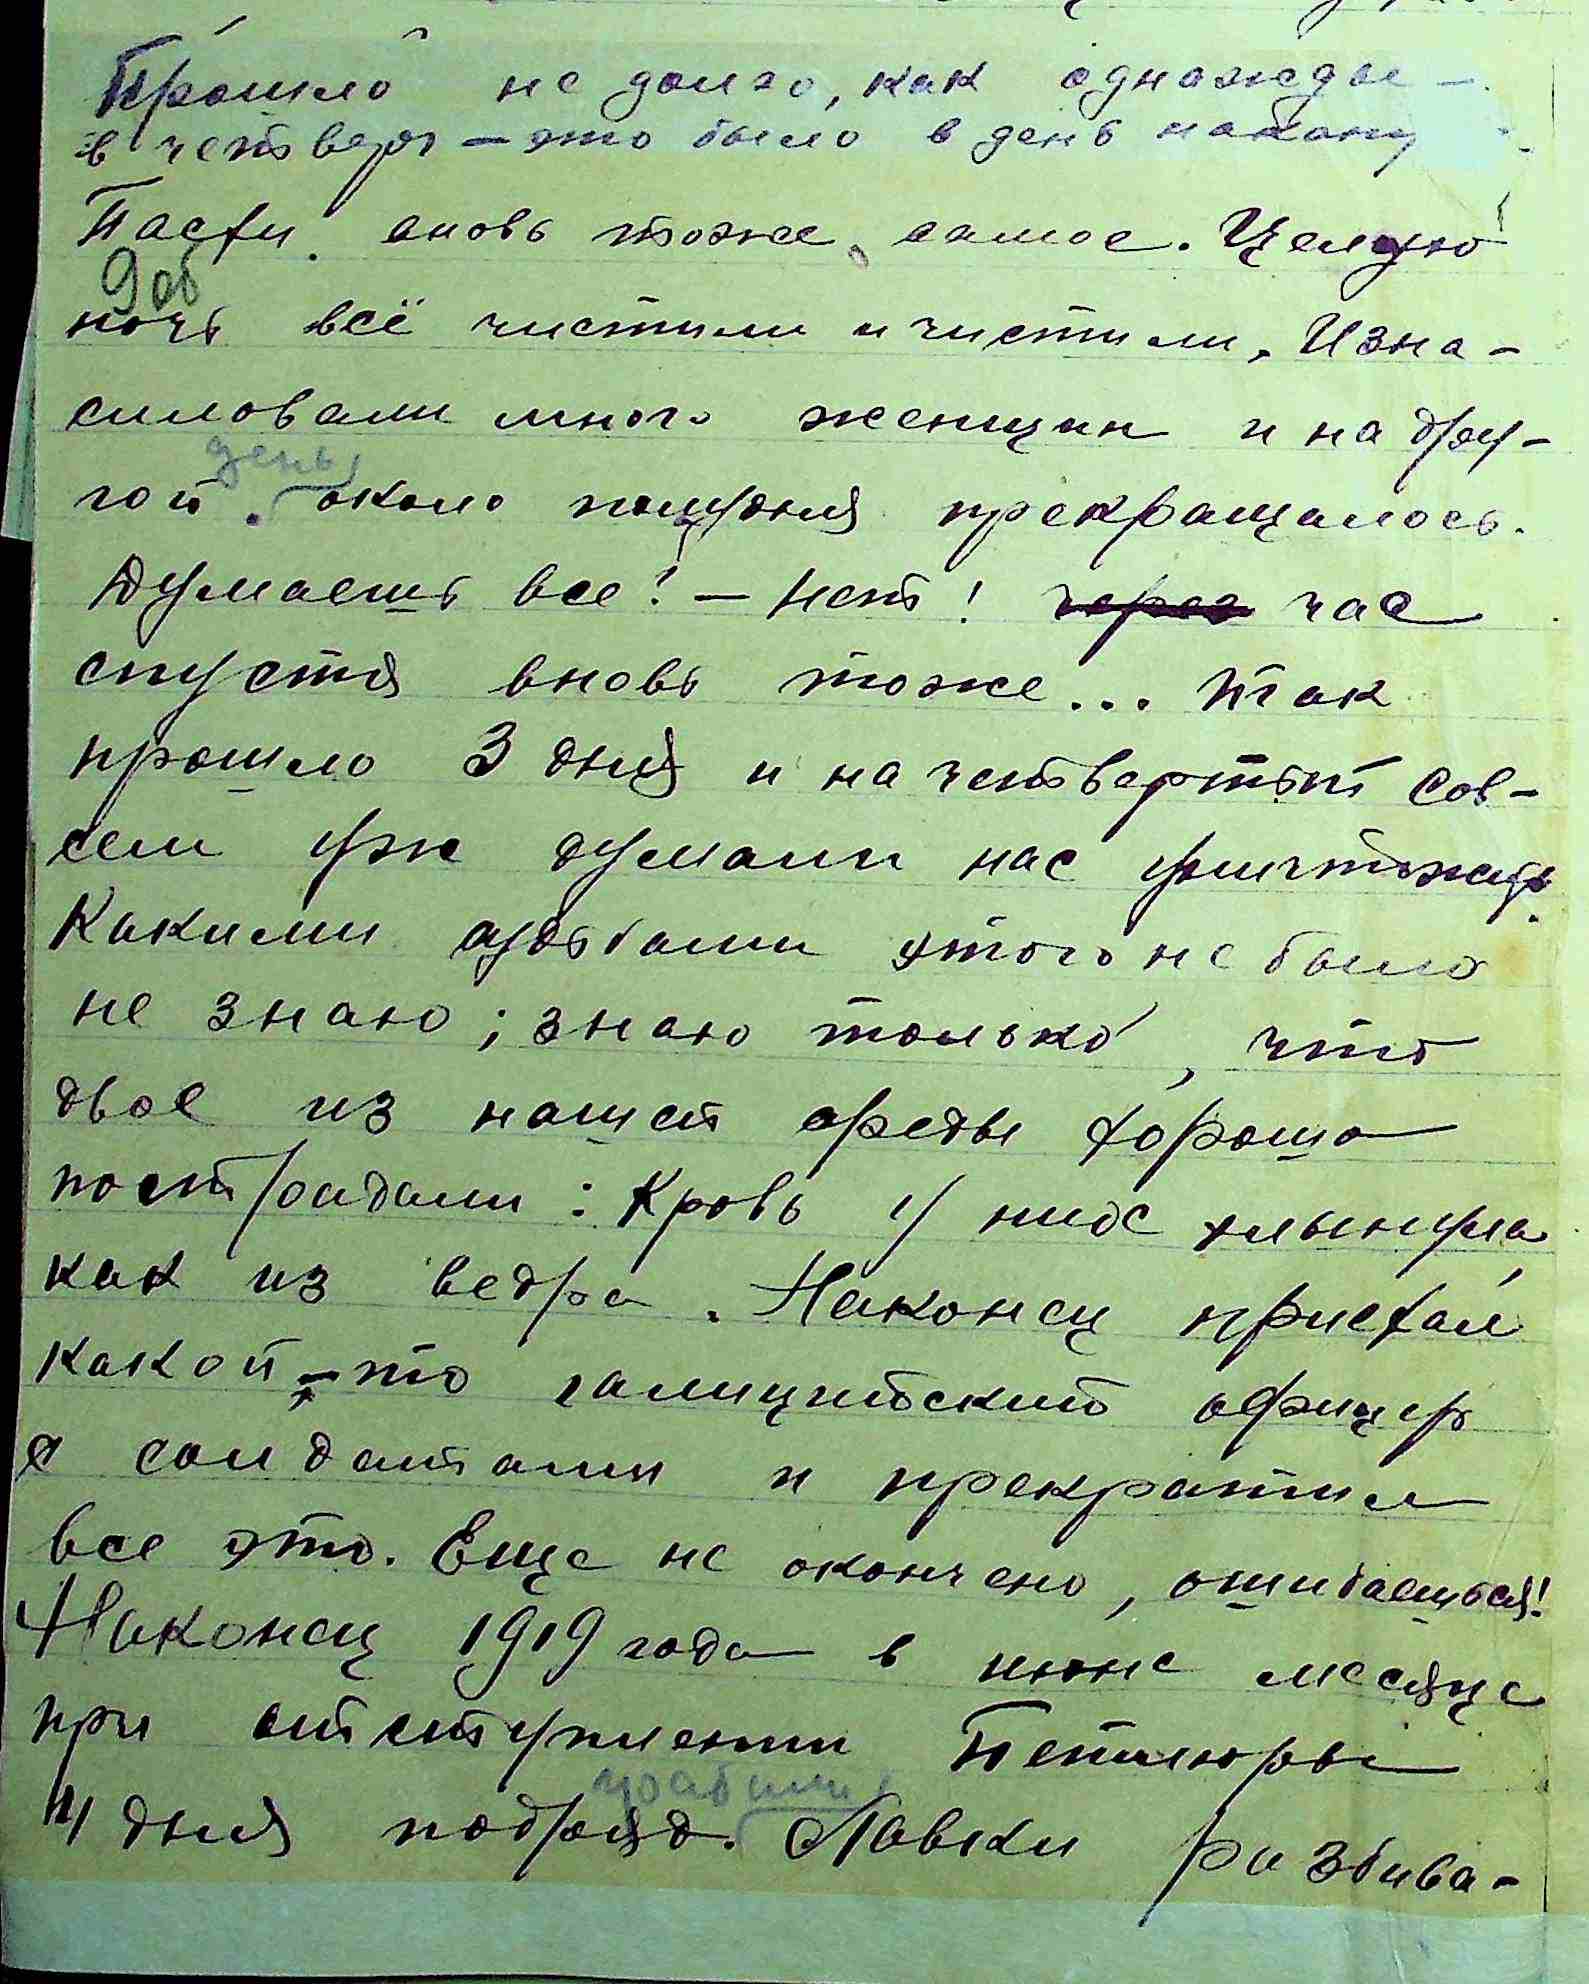 Прошло не долго, как однажды –
в четверг – это было в день накану
Пасхи вновь тоже самое. Целую
9об
ночь всё чистили и чистили. Изна-
силовали много женщин и на дру-
день
гой. около полудня прекращалось.
Думаешь все! – Нет! через час
спустя вновь тоже... Так
прошло 3 дня и на четвертый сов-
сем уж думали нас уничтожут.
Какими судьбами этого не было
не знаю; знаю только, что
двое из нашей среды хорошо
пострадали: Кровь у них хлынула,
как из ведра. Наконец приехал
какой-то галицийский офицер
с солдатами и прекратил
все это. Еще не окончено, ошибаешься!
Наконец 1919 года в июне месяце
при отступлении Петлюры
грабили
4 дня подряд. Лавки разбива-